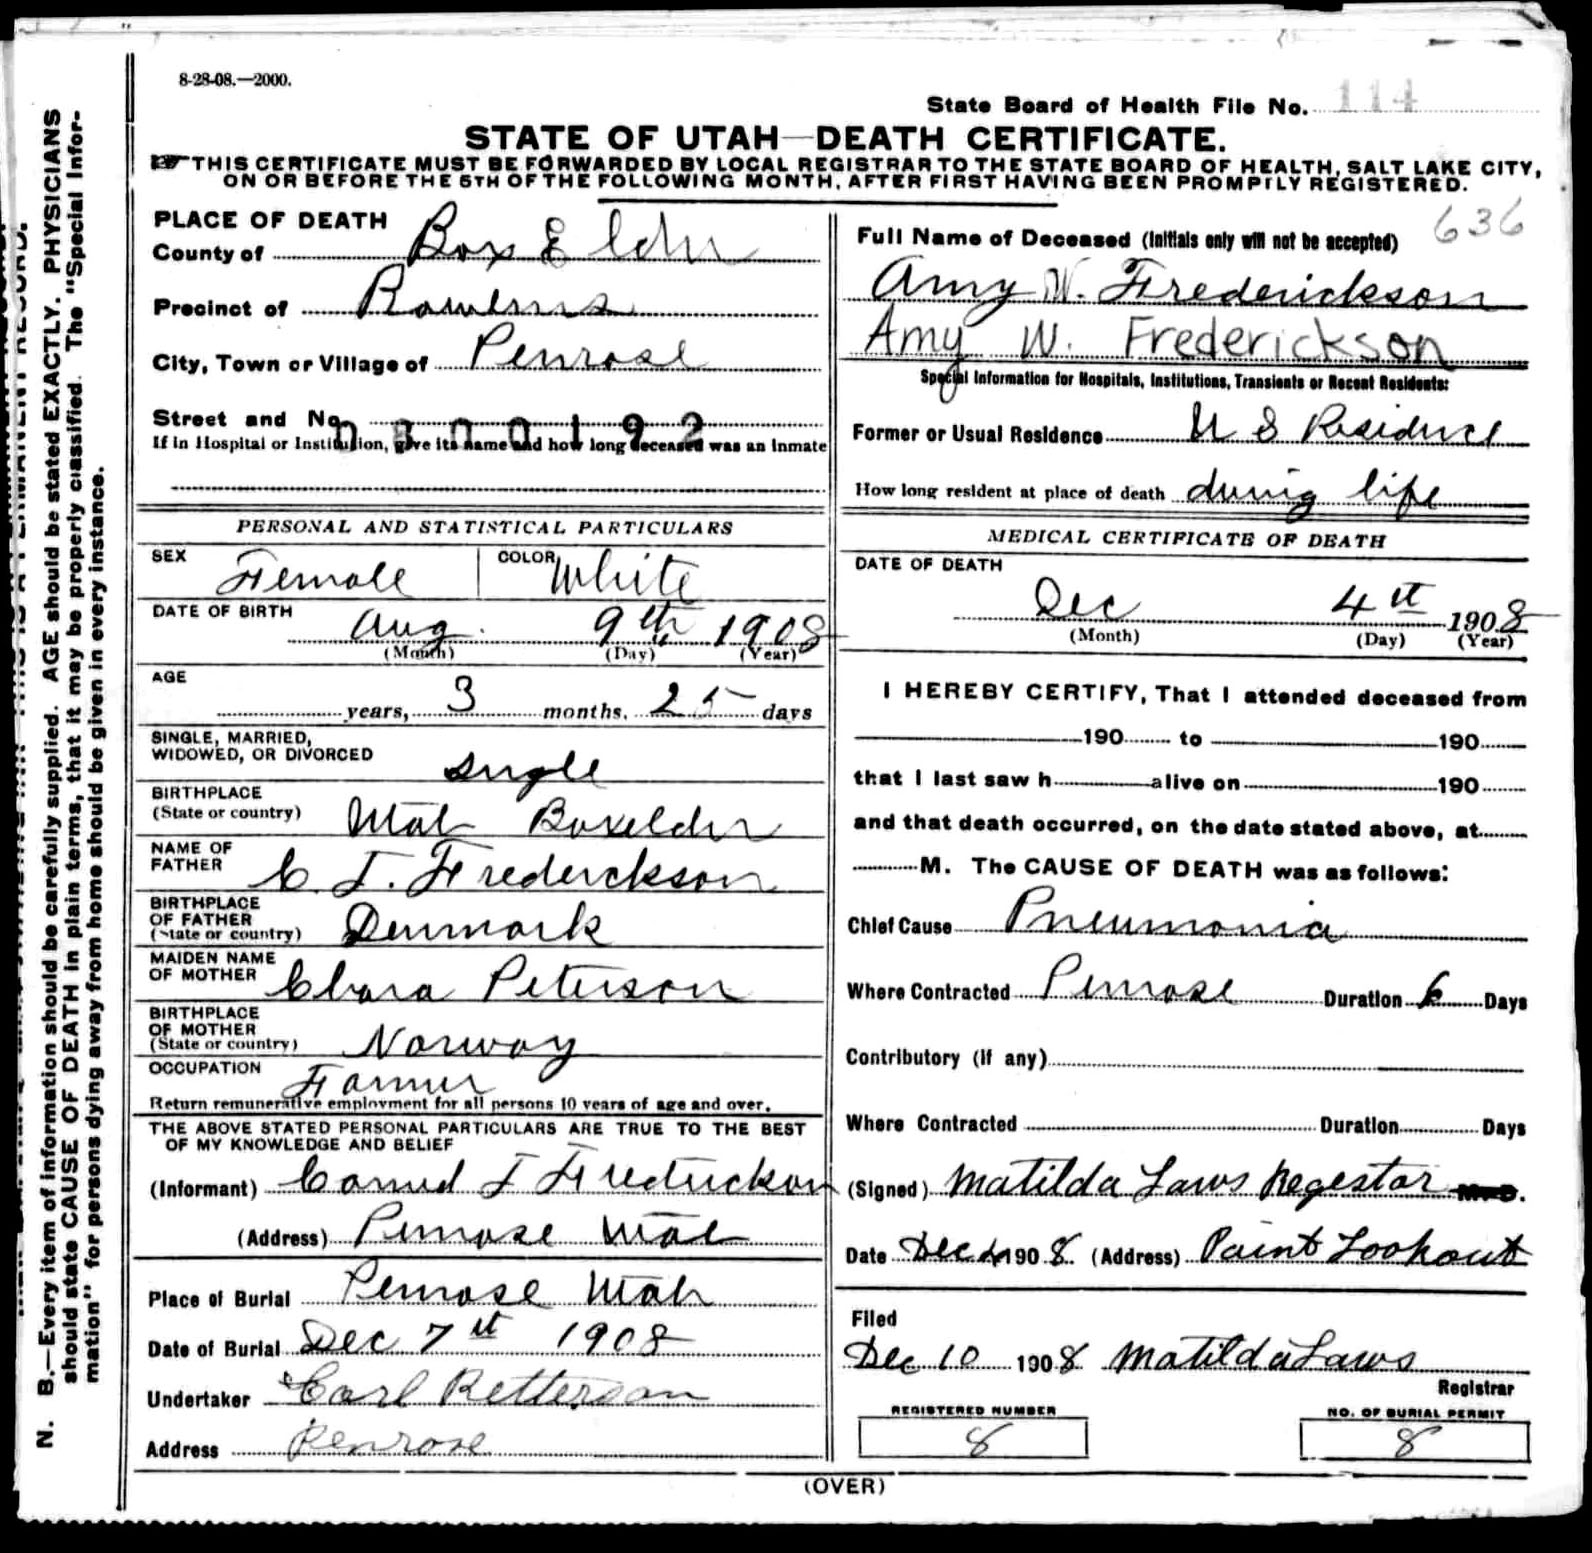 8-28-08.—2000.
State Board of Health File No. 114
STATE OF UTAH—DEATH CERTIFICATE.
THIS CERTIFICATE MUST BE FORWARDED BY LOCAL REGISTRAR TO THE STATE BOARD OF HEALTH, SALT LAKE CITY,
ON OR BEFORE THE 5TH OF THE FOLLOWING MONTH, AFTER FIRST HAVING BEEN PROMPTLY REGISTERED.
PLACE OF DEATH
County of Box Elder
Precinct of
City, Town or Village of Penrose
Street and No.
0300192
If in Hospital or Institution, give its name and how long deceased was an inmate
636
Full Name of Deceased (Initials only will not be accepted)
Amy W. Frederickson
Amy W. Frederickson
Special Information for Hospitals, Institutions, Transients or Recent Residents:
Former or Usual Residence U S Residence
How long resident at place of death during life
PERSONAL AND STATISTICAL PARTICULARS
SEX Female COLOR White
DATE OF BIRTH
Aug. 9th 1908
(Month) (Day) (Year)
AGE
years, 3 months, 25 days
SINGLE, MARRIED,
WIDOWED, OR DIVORCED single
BIRTHPLACE
(State or country) Utah Boxelder
NAME OF
FATHER C. T. Frederckson
BIRTHPLACE
OF FATHER
(State or country) Denmark
MAIDEN NAME
OF MOTHER Clara Peterson
BIRTHPLACE
OF MOTHER
(State or country) Norway
OCCUPATION Farmer
Return remunerative employment for all persons 10 years of age and over.
THE ABOVE STATED PERSONAL PARTICULARS ARE TRUE TO THE BEST
OF MY KNOWLEDGE AND BELIEF
(Informant)
(Address) Penrose Utah
Place of Burial Penrose Utah
Date of Burial Dec 7st 1908
Undertaker Carl
Address Penrose
MEDICAL CERTIFICATE OF DEATH
DATE OF DEATH
Dec 4st 1908
(Month) (Day) (Year)
I HEREBY CERTIFY, That I attended deceased from
190 to 190
that I last saw h alive on 190
and that death occurred, on the date stated above, at
M. The CAUSE OF DEATH was as follows:
Chief Cause Pneumonia
Where Contracted Penrose Duration 6 Days
Contributory (if any)
Where Contracted Duration Days
(Signed) Matilda Laws Regestar M. D.
Date Dec 4 1908 (Address) Point Lookout
Filed
Dec 10 1908 Matilda Laws
Registrar
REGISTERED NUMBER
8
NO. OF BURIAL PERMIT
8
(OVER)
N. B.—Every item of information should be carefully supplied. AGE should be stated EXACTLY. PHYSICIANS
should state CAUSE OF DEATH in plain terms, that it may be properly classified. The "Special Infor-
mation" for persons dying away from home should be given in every instance.